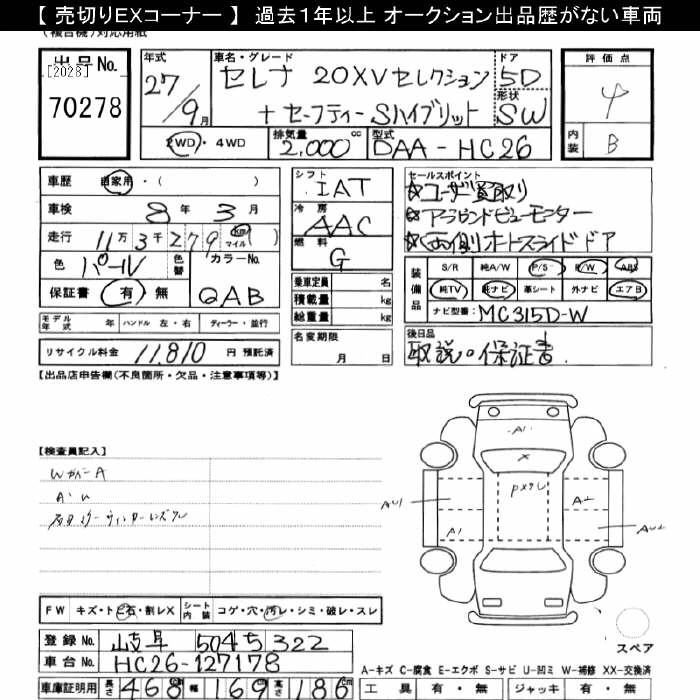 【 売切りEXコーナー 】 過去1年以上 オークション出品歴がない車両
(複合機)対応用紙
出品No.
[2028]
70278
年式
27/9月
車名・グレード
セレナ 20XVセレクション
+セーフティーSハイブリット
ドア
5D
形状
SW
評価点
4
内装
B
2WD・4WD
排気量
2.000cc
型式
DAA-HC26
車歴
自家用・( )
車検
8年3月
走行
11万3千279 km マイル ( )
色
パール
色替
カラーNo.
QAB
保証書
有 無
シフト
IAT
冷房
AAC
燃料
G
乗車定員 名
積載量 kg
総重量 kg
セールスポイント
☆ユーザー買取り
☆アラウンドビューモニター
☆両側オートスライドドア
装備品
S/R 純A/W P/S P/W ABS
純TV 純ナビ 革シート 外ナビ エアB
ナビ型番: MC315D-W
モデル年式 年 ハンドル 左・右 ディーラー・並行
リサイクル料金 11.810 円 預託済
名変期限
月 日
後日品
取説。保証書
【出品店申告欄(不良箇所・欠品・注意事項等)】
【検査員記入】
WカバーA
A1
X
AU1
A1
A2
AU2
FW キズ・トビ石・割レX
シート内装 コゲ・穴・汚レ・シミ・破レ・スレ
登録No. 岐阜 504ち322
車台No. HC26-127178
車庫証明用 長さ 468cm 幅 169cm 高さ 186cm
スペア
A-キズ C-腐食 E-エクボ S-サビ U-凹ミ W-補修 XX-交換済
工具 有・無 ジャッキ 有・無